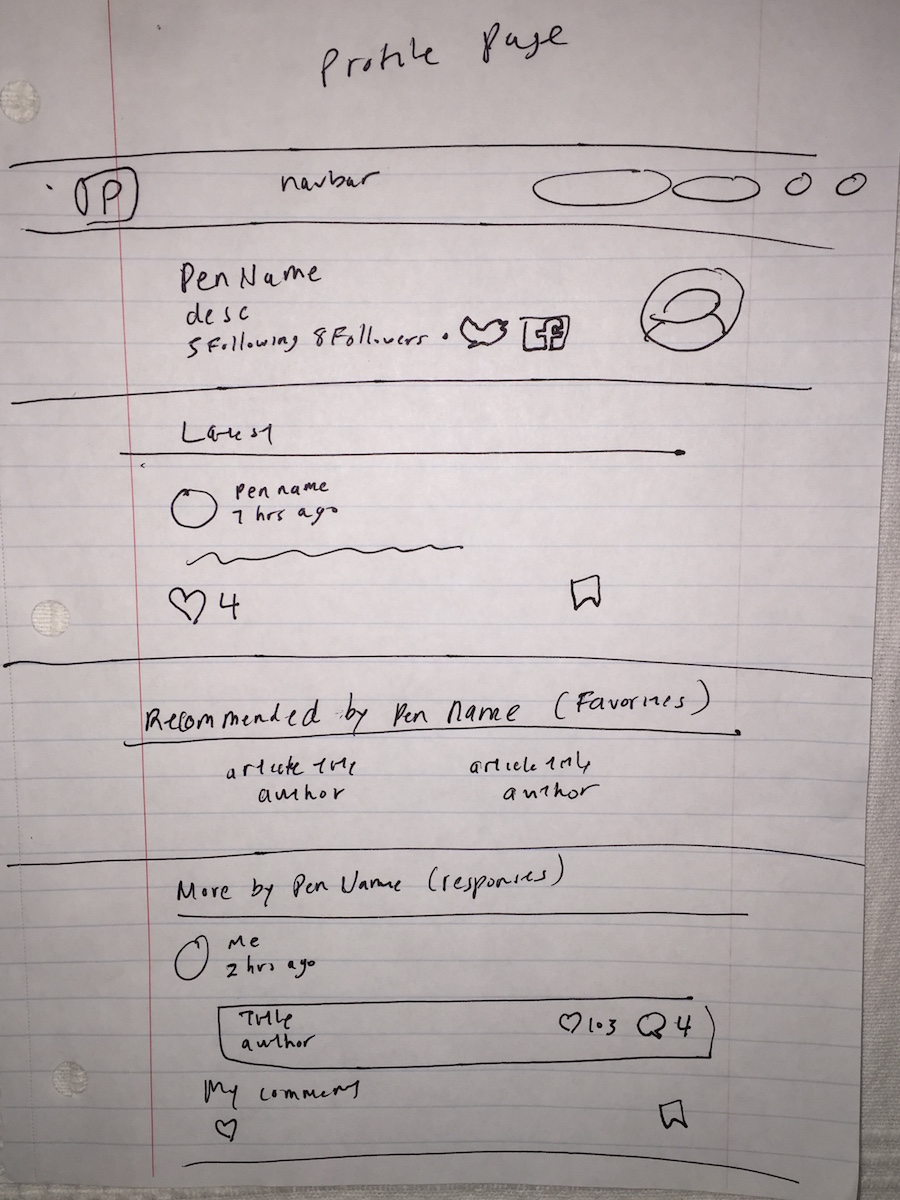 Profile Page
P navbar
Pen Name
desc
5 Following 8 Followers • f
Latest
Pen name
7 hrs ago
4
Recommended by Pen Name (Favorites)
article title article title
author author
More by Pen Name (responses)
Me
2 hrs ago
Title 103 4
author
My comment